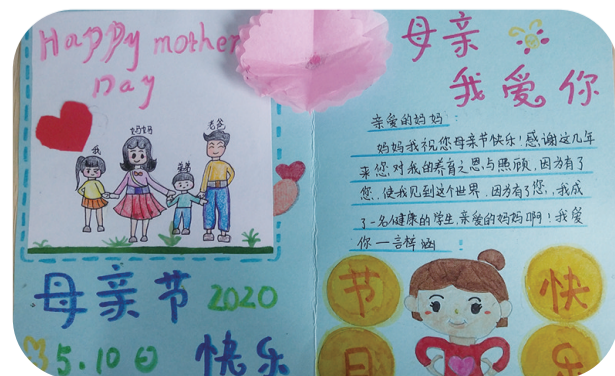 Happy mother
Day
我
妈妈
弟弟
老爸
母亲节 2020
5.10日 快乐
母亲
我爱你
亲爱的妈妈:
妈妈我祝您母亲节快乐!感谢这几年
来您对我的养育之恩与照顾,因为有了
您,使我见到这个世界,因为有了您,我成
了一名健康的学生,亲爱的妈妈啊!我爱
你一言梓涵
节 快
日 乐